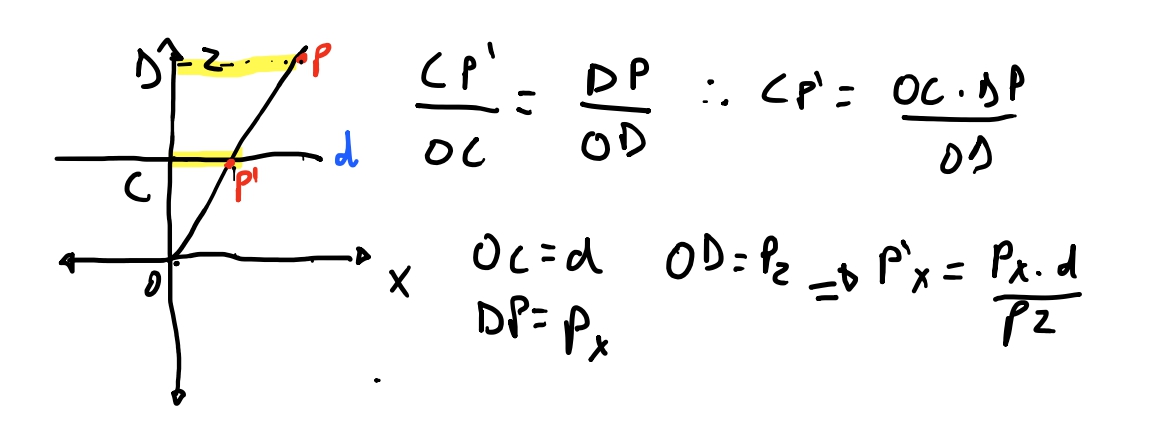 D Z P
d
C P'
O X
CP'/OC = DP/OD ∴ CP' = OC · DP/OD
OC = d OD = Pz ⇒ P'x = Px · d/Pz
DP = Px